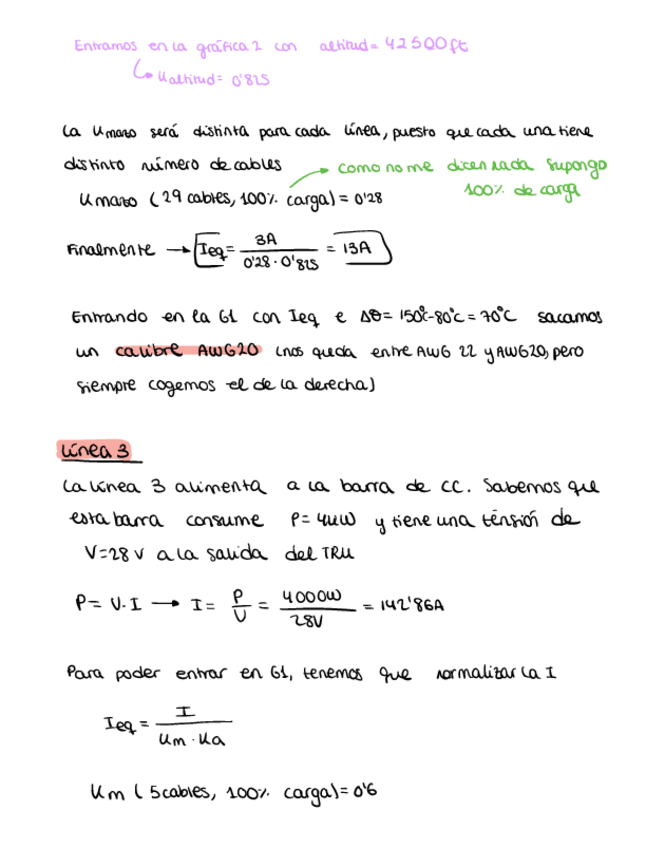 Entramos en la gráfica 2 con altitud = 42500ft
↳ Kaltitud = 0'825
La Kmazo será distinta para cada línea, puesto que cada una tiene
distinto número de cables
→ como no me dicen nada supongo
100% de carga
Kmazo (29 cables, 100% carga) = 0'28
Finalmente → Ieq = 3A / 0'28 · 0'825 = 13A
Entrando en la G1 con Ieq e Δθ = 150ºC - 80ºC = 70ºC sacamos
un calibre AWG20 (nos queda entre AWG 22 y AWG20, pero
siempre cogemos el de la derecha)
Línea 3
La línea 3 alimenta a la barra de CC. Sabemos que
esta barra consume P = 4KW y tiene una tensión de
V=28V a la salida del TRU
P = V·I → I = P / V = 4000W / 28V = 142'86A
Para poder entrar en G1, tenemos que normalizar la I
Ieq = I / Km · Ka
Km (5cables, 100% carga) = 0'6